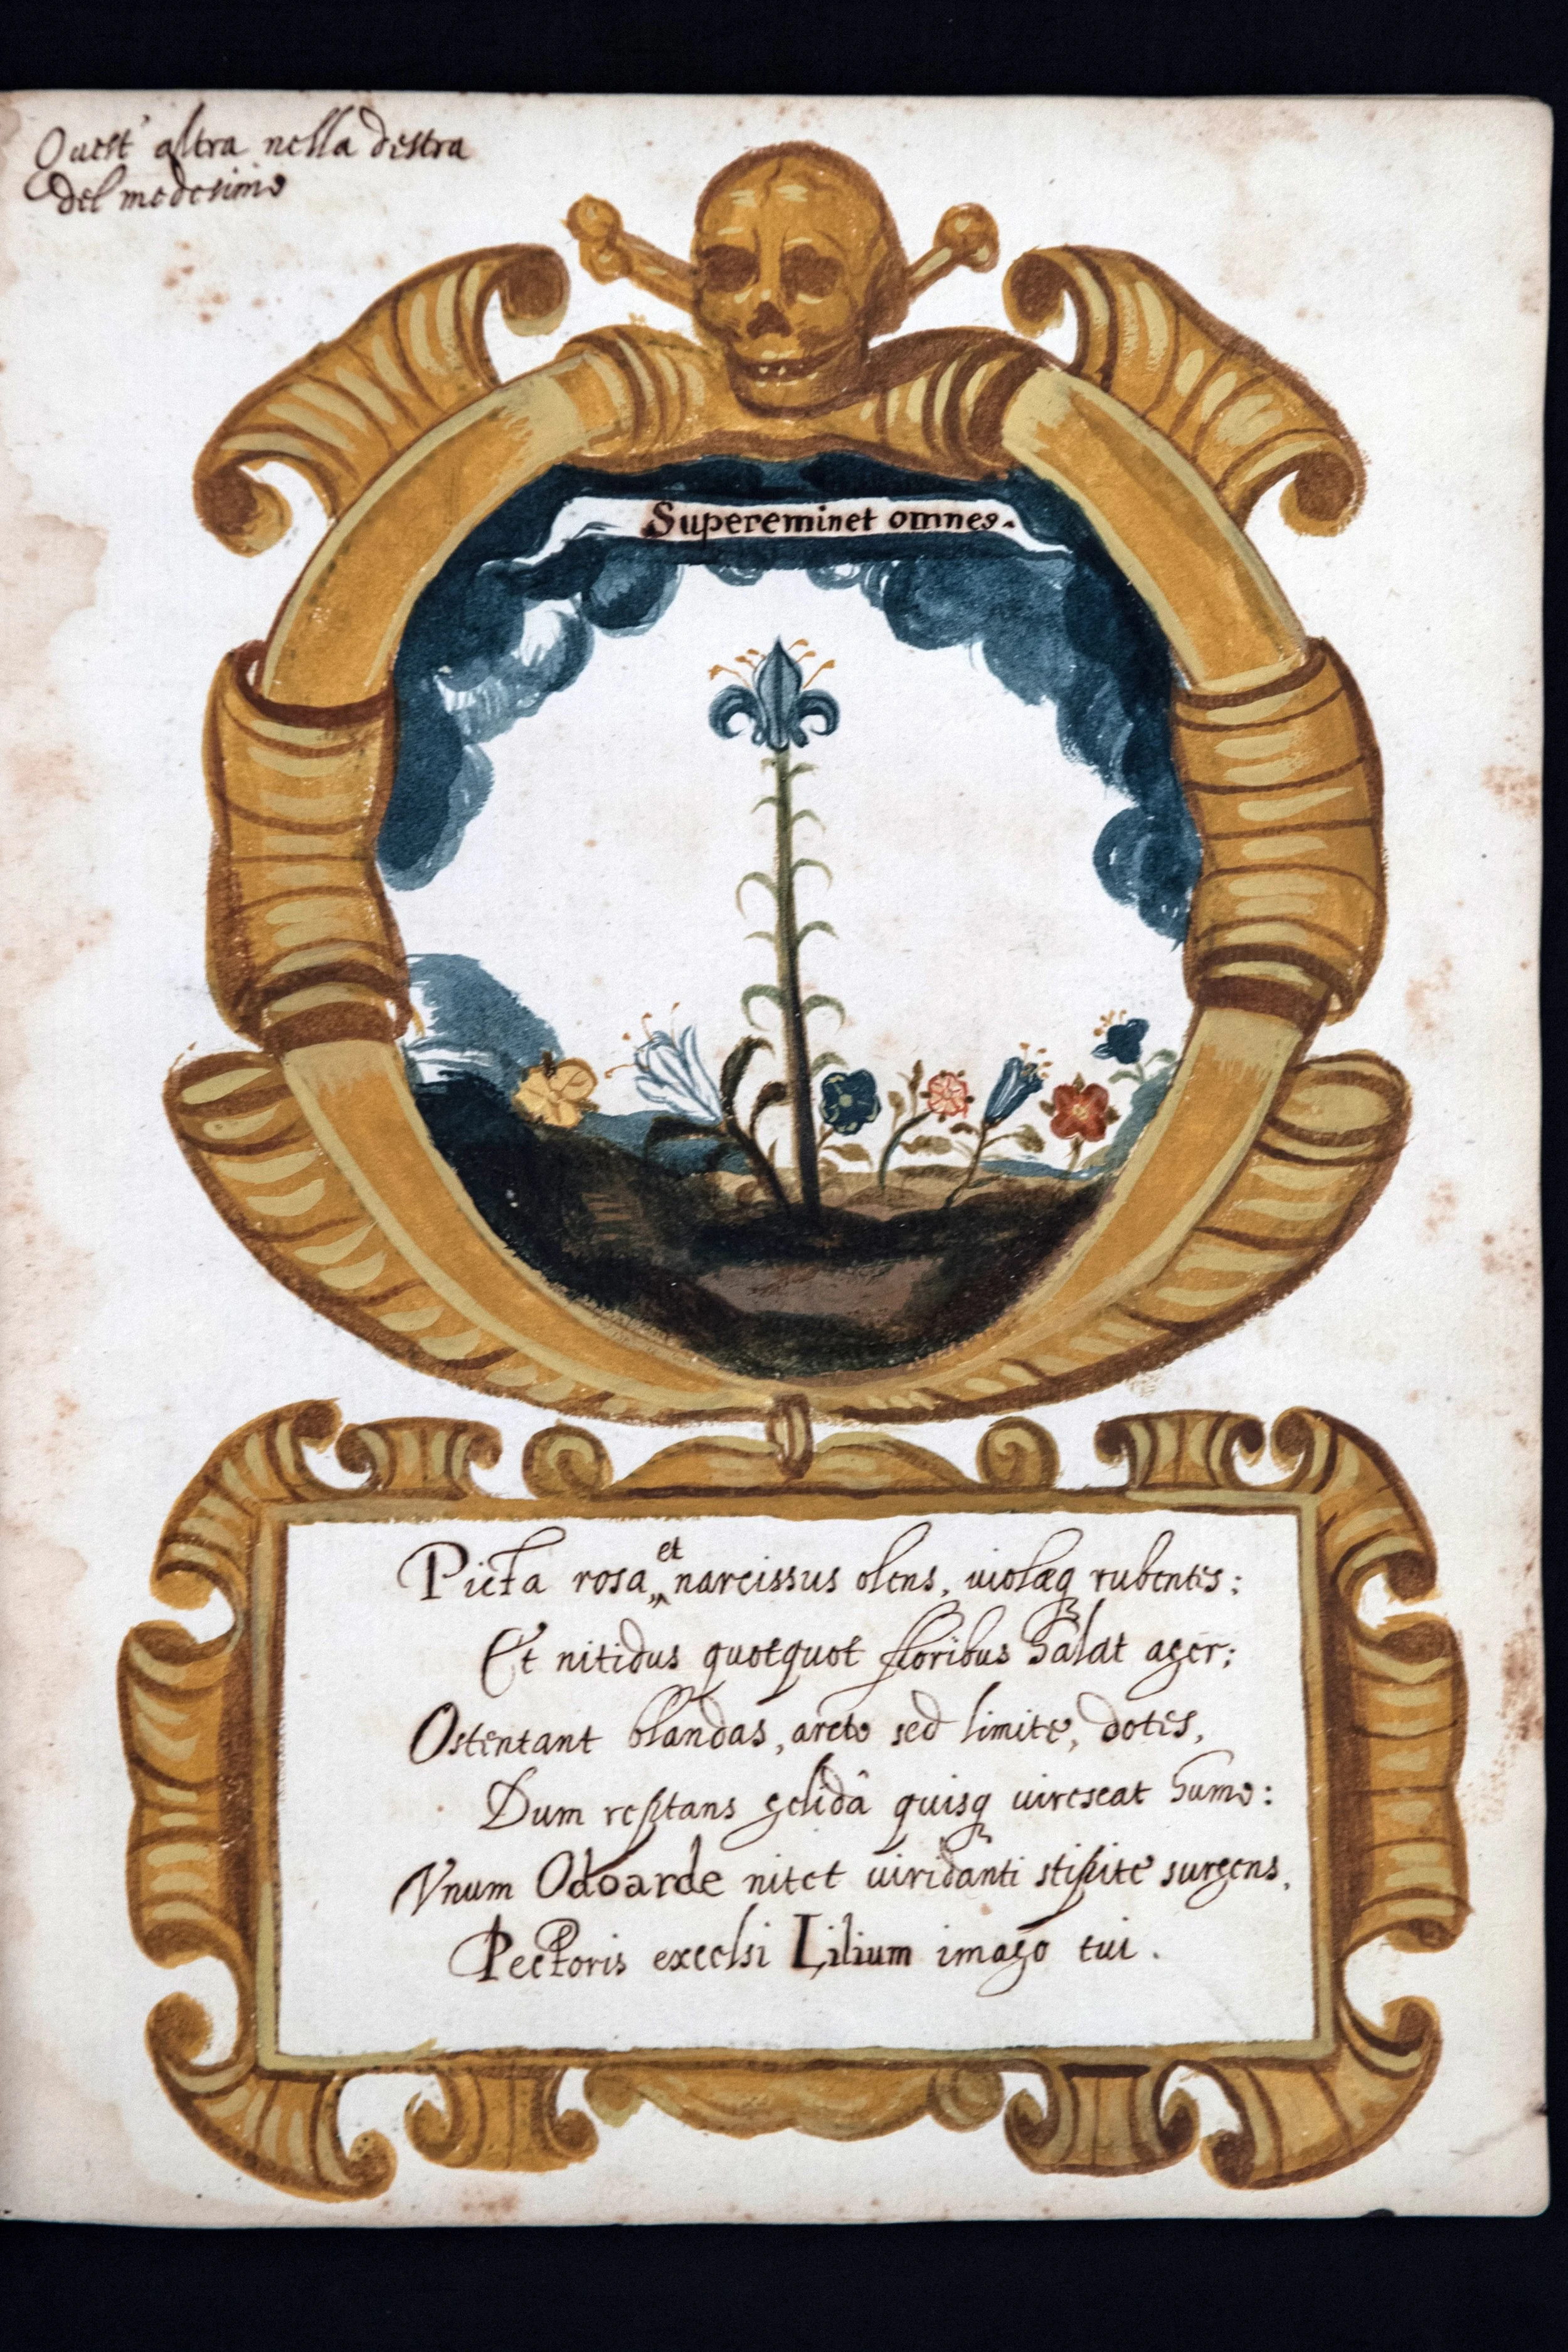 Quest' altra nella destra
del medesimo
Supereminet omnes.
Picta rosa, et narcissus olens, uiolæq; rubentes:
Et nitidus quotquot floribus halat ager;
Ostentant blandas, arcto sed limite, dotes,
Dum reptans gelidâ quisq; uirescat humo:
Vnum Odoarde nitet uiridanti stipite surgens,
Pectoris excelsi Lilium imago tui.